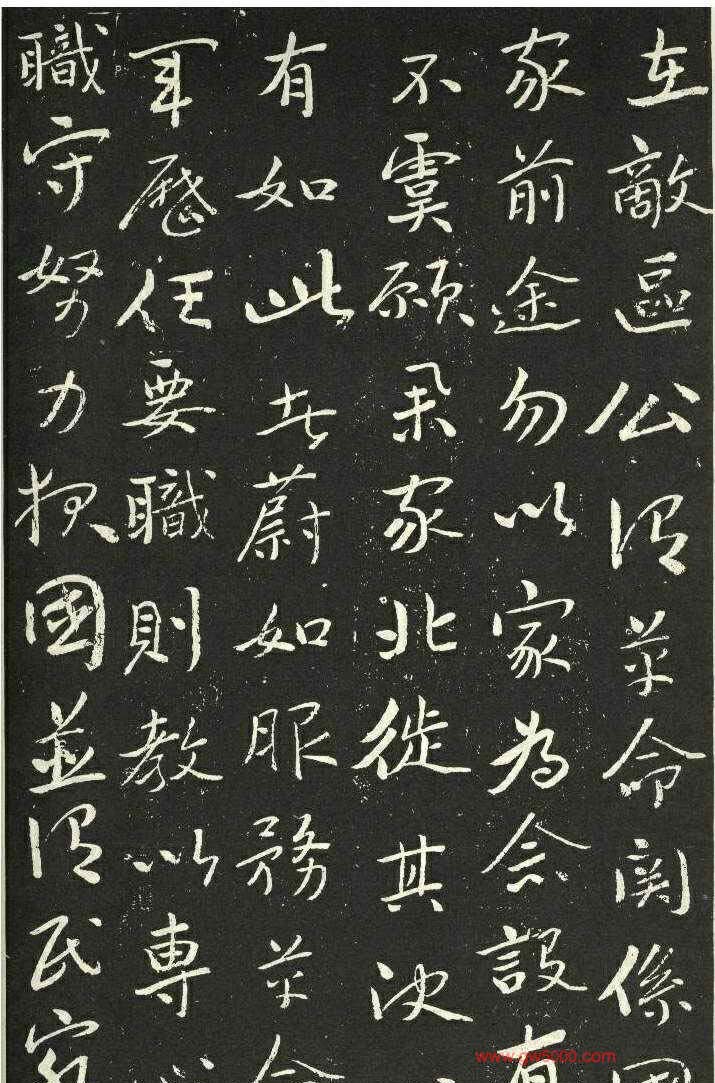 在敵區公謂革命関係國
家前途勿以家為念設有
不虞願舉家北徙其決
有如此者蔚如服務革命
軍歷任要職則教以専心
職守努力報國並謂民
www.gw5000.com